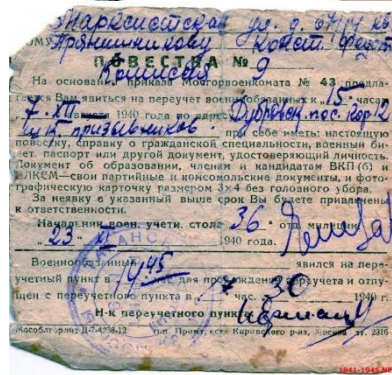 ул. д. 67/14 кв
КОМУ Прянишникову Конст.
ПОВЕСТКА №
Комиссия 9
На основании приказа Мосгорвоенкомата № 43 предла-
Вам явиться на переучет военнообязанных к 15 часа
7-XII августа 1940 года по адресу Дубровск. пос. кор 12
призывников. при себе иметь: настоящую
повестку, справку о гражданской специальности, военный би-
лет, паспорт или другой документ, удостоверяющий личность,
документ об образовании, членам и кандидатам ВКП(б) и
ВЛКСМ—свои партийные и комсомольские документы, и фото-
графическую карточку размером 3×4 без головного убора.
За неявку в указанный выше срок Вы будете привлечены
к ответственности.
Начальник воен. учетн. стола 36 отд. милиции
"23" 1940 года.
Военнообязанный явился на пере-
учетный пункт в 19 45 для прохождения переучета и отпу-
щен с переучетного пункта в 7 час. 30 1940
Н-к переучетного пункта
Мособлгорлит Д-7-4238-12 Тип. Кировского р-на, Москва зт. 2316
1941-1945.